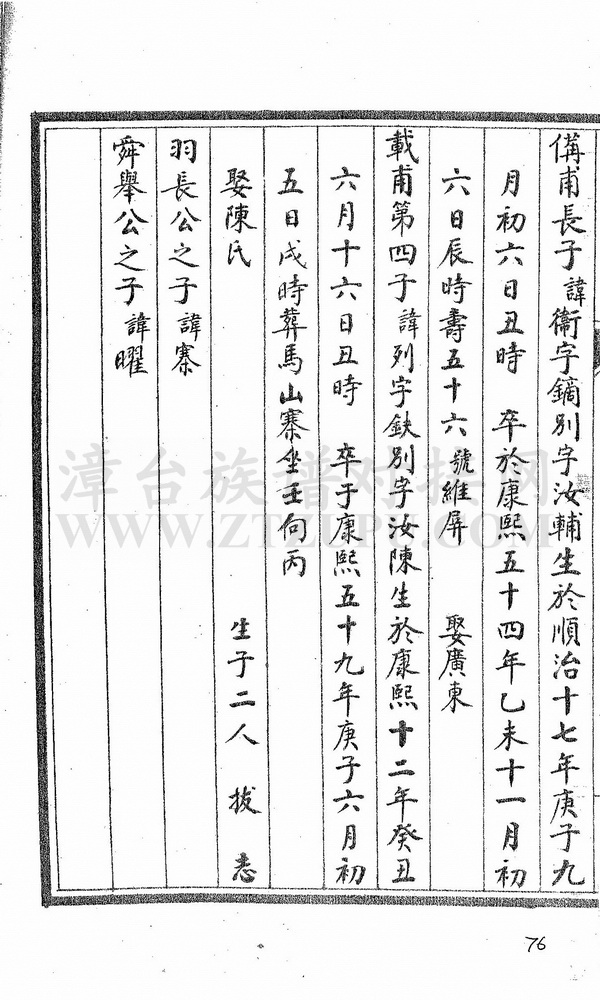 傋甫長子諱衞字鏑別字汝輔生於順治十七年庚子九
月初六日丑時 卒於康熙五十四年乙未十一月初
六日辰時壽五十六號維屏 娶廣東
載甫第四子諱列字鈌別字汝陳生於康熙十二年癸丑
六月十六日丑時 卒于康熙五十九年庚子六月初
五日戌時葬馬山寨坐壬向丙
娶陳氏 生子二人 拔 志
羽長公之子諱寨
舜舉公之子諱曜
漳台族譜对接网
76